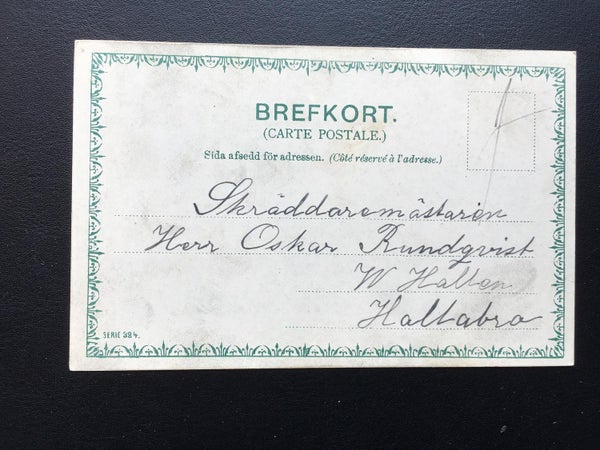 BREFKORT.
(CARTE POSTALE.)
Sida afsedd för adressen. (Côté réservé à l'adresse.)
Skräddaremästaren
Herr Oskar Rundqvist
W Hallen
Hallabro
SERIE 384.